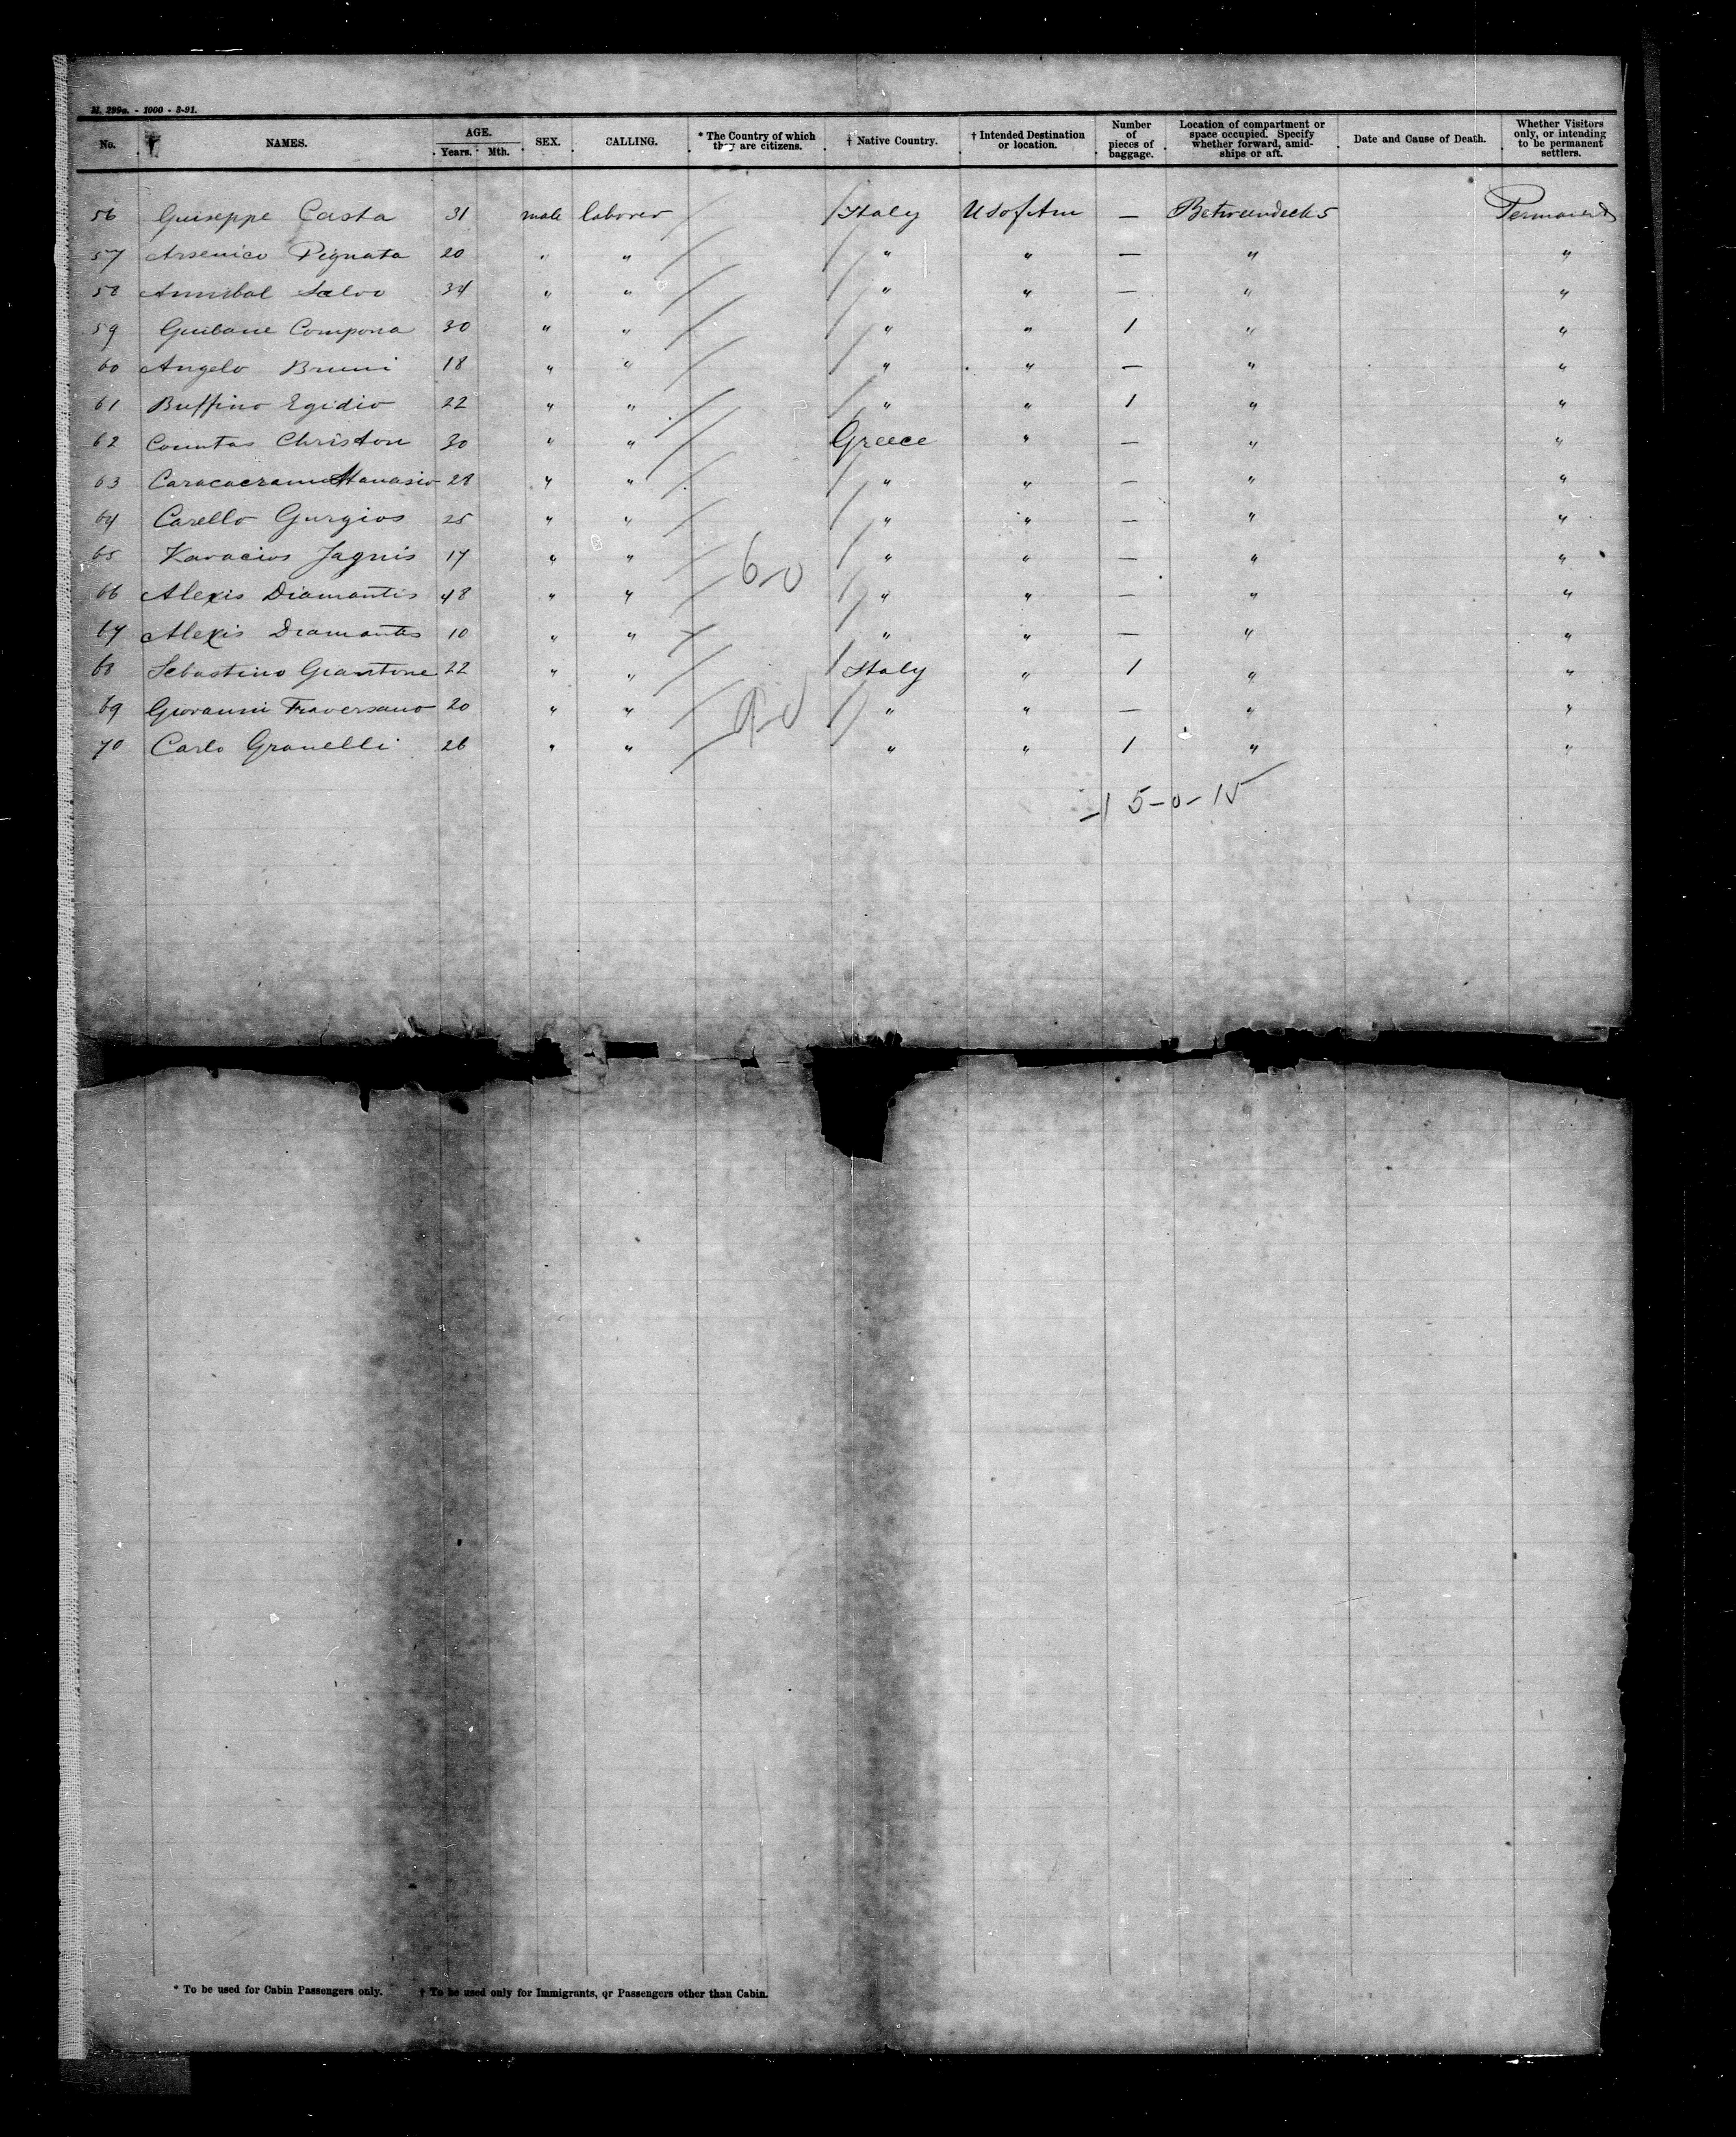 M. 299a. - 1000 - 3-91.
No. NAMES. AGE. Years. Mth. SEX. CALLING. * The Country of which they are citizens. † Native Country. † Intended Destination or location. Number of pieces of baggage. Location of compartment or space occupied. Specify whether forward, amidships or aft. Date and Cause of Death. Whether Visitors only, or intending to be permanent settlers.
56 Guiseppe Casta 31 male laborer / Italy U S of Am — Betweendecks Permanent
57 Arsenico Pignata 20 " " " " — " "
58 Annibal Salvo 34 " " " " — " "
59 Compona 30 " " " " 1 " "
60 Angelo Bruni 18 " " " " — " "
61 Buffino Egidio 22 " " " " 1 " "
62 Countas Christon 30 " " Greece " — " "
63 Atanasio 28 " " " " — " "
64 Carello Gurgios 25 " " " " — " "
65 Karacios Jagnis 17 " " " " — " "
6-0
66 Alexis Diamantis 48 " " " " — " "
67 Alexis Diamantis 10 " " " " — " "
68 Sebastino Giantone 22 " " Italy " 1 " "
69 Giovanni Traversano 20 " " " " — " "
9-0
70 Carlo Granelli 26 " " " " 1 " "
15-0-15
* To be used for Cabin Passengers only. † To be used only for Immigrants, or Passengers other than Cabin.